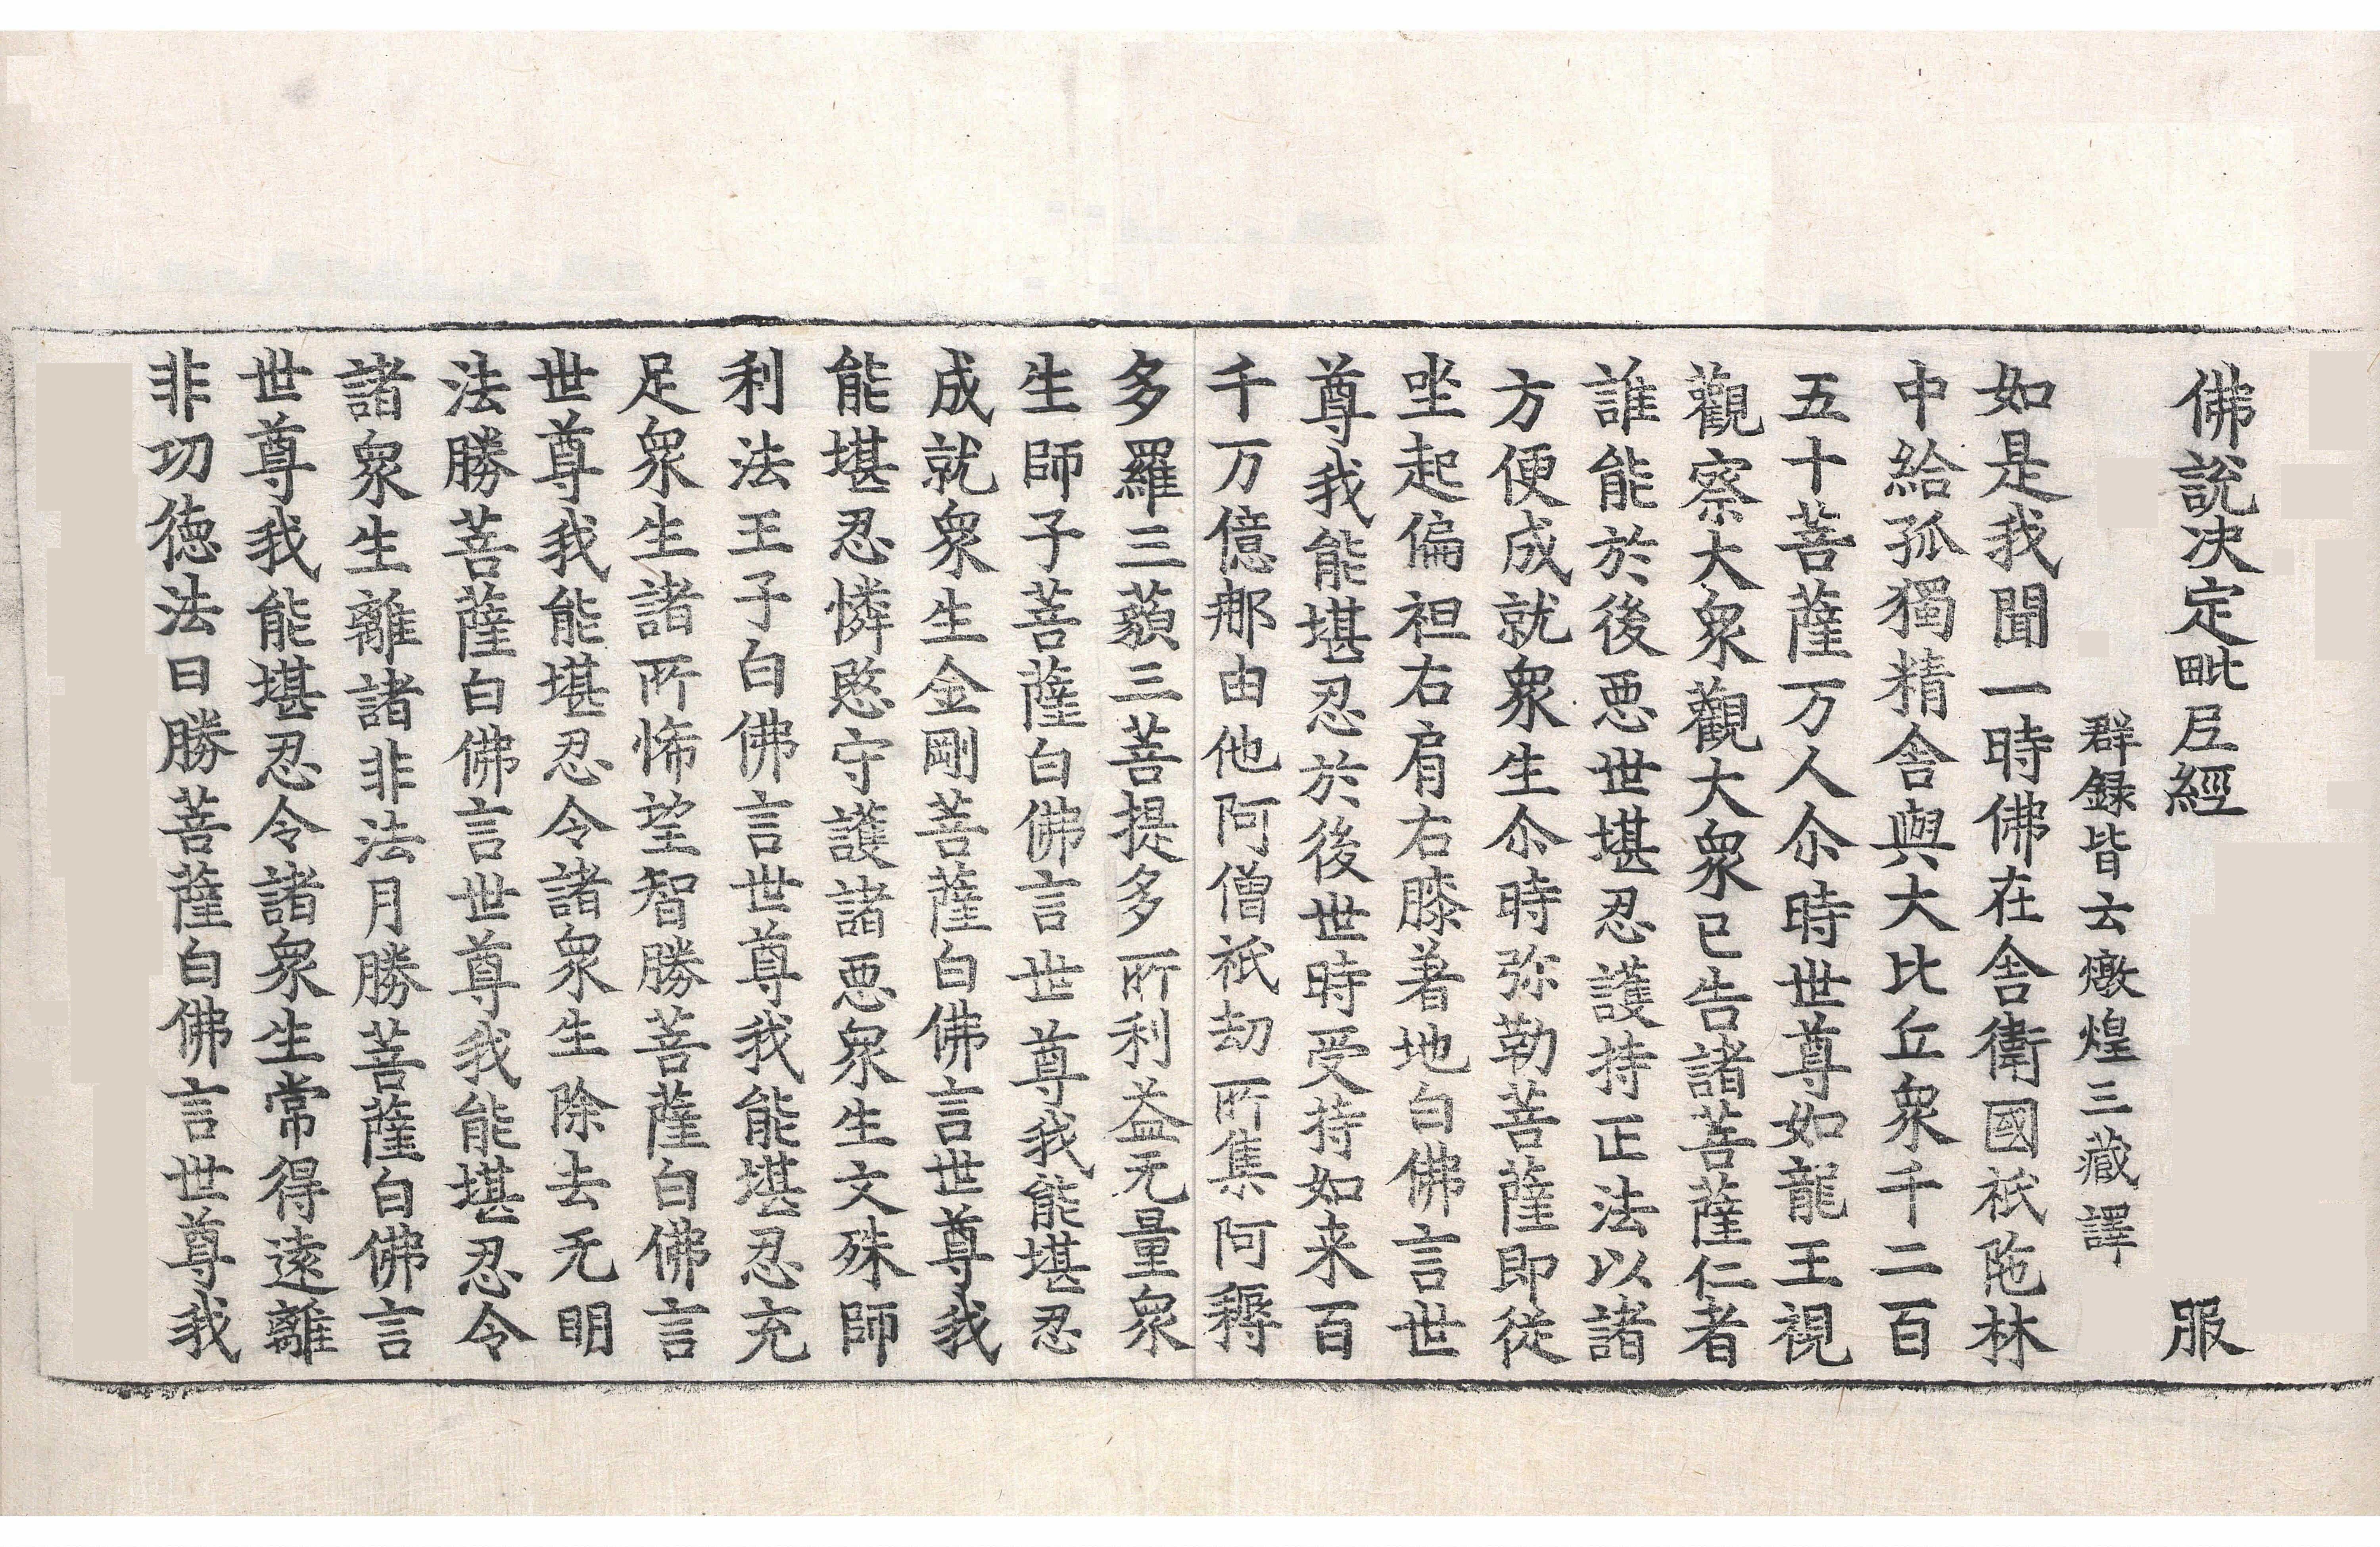 佛說决定毗尼經 服
群録皆云燉煌三藏譯
如是我聞一時佛在舍衛國祇陁林
中給孤獨精舍與大比丘衆千二百
五十菩薩万人尒時世尊如龍王視
觀察大衆觀大衆已告諸菩薩仁者
誰能於後惡世堪忍護持正法以諸
方便成就衆生尒時弥勒菩薩即從
坐起偏袒右肩右膝著地白佛言世
尊我能堪忍於後世時受持如来百
千万億那由他阿僧祇劫所集阿耨
多羅三藐三菩提多所利益无量衆
生師子菩薩白佛言世尊我能堪忍
成就衆生金剛菩薩白佛言世尊我
能堪忍憐愍守護諸惡衆生文殊師
利法王子白佛言世尊我能堪忍充
足衆生諸所悕望智勝菩薩白佛言
世尊我能堪忍令諸衆生除去无明
法勝菩薩白佛言世尊我能堪忍令
諸衆生離諸非法月勝菩薩白佛言
世尊我能堪忍令諸衆生常得遠離
非功徳法日勝菩薩白佛言世尊我